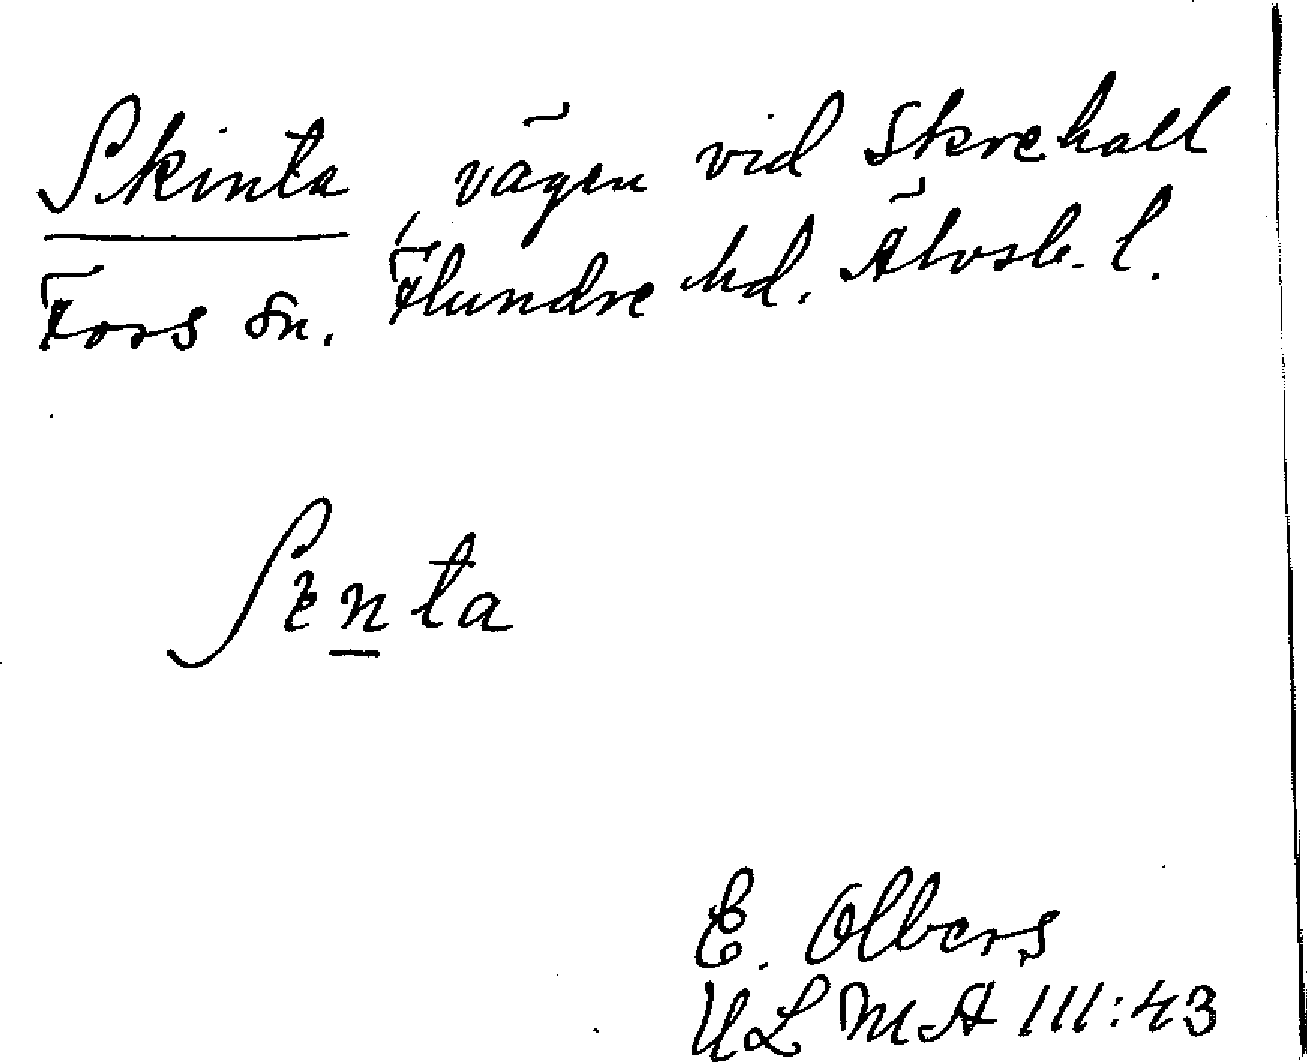 Skinta, vägen vid Skrehall
Fors sn. Flundre hd. Älvsb. l.
Senta
E. Olbers
ULMA 111:43